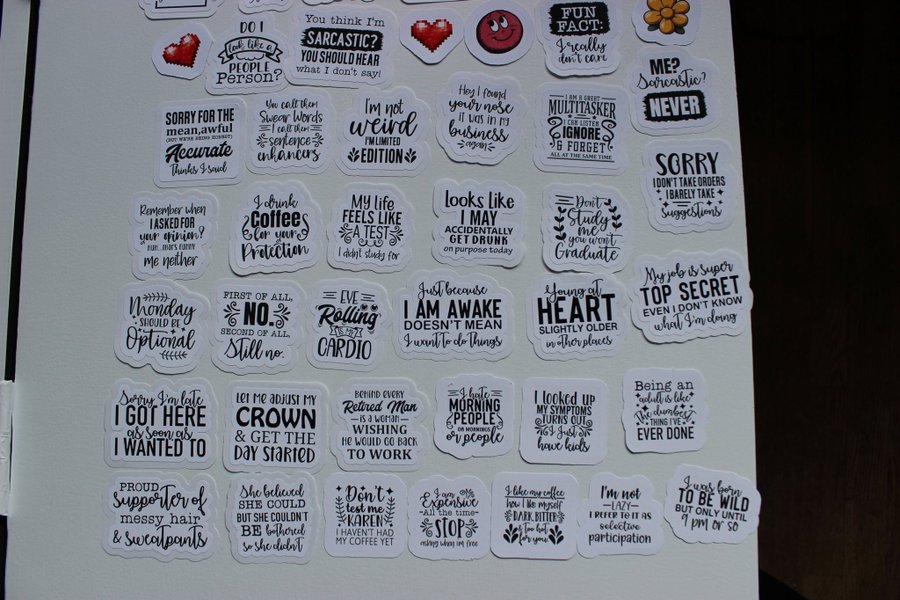 DO I
look like a
PEOPLE
Person?
You think I'm
SARCASTIC?
YOU SHOULD HEAR
what I don't say!
FUN
FACT:
I really
don't care
ME?
Sarcastic?
NEVER
SORRY FOR THE
mean, awful
Accurate
Things I said
You call them
Swear Words
I call them
sentence
enhancers
I'm not
weird
I'M LIMITED
EDITION
Hey I found
your nose
it was in my
business
again
I AM A GREAT
MULTITASKER
I CAN LISTEN
IGNORE
& FORGET
ALL AT THE SAME TIME
SORRY
I DON'T TAKE ORDERS
I BARELY TAKE
suggestions
Remember when
I ASKED FOR
your opinion?
me neither
I drink
Coffee
for your
Protection
My life
FEELS LIKE
A TEST
I didn't study for
Looks Like
I MAY
ACCIDENTALLY
GET DRUNK
on purpose today
Don't
Study
me
you won't
Graduate
My job is super
TOP SECRET
EVEN I DON'T KNOW
what I'm doing
Monday
SHOULD BE
Optional
FIRST OF ALL,
NO.
SECOND OF ALL,
Still no.
EYE
Rolling
IS MY
CARDIO
Just because
I AM AWAKE
DOESN'T MEAN
I want to do things
Young at
HEART
SLIGHTLY OLDER
in other places
Sorry I'm late
I GOT HERE
as soon as
I WANTED TO
LET ME ADJUST MY
CROWN
& GET THE
DAY STARTED
BEHIND EVERY
Retired Man
IS A WOMAN
WISHING
HE WOULD GO BACK
TO WORK
I hate
MORNING
PEOPLE
OR MORNINGS
or people
I LOOKED UP
MY SYMPTOMS
TURNS OUT
I Just
have kids
Being an
adult is like
The dumbest
THING I'VE
EVER DONE
PROUD
supporter of
messy hair
& sweatpants
She believed
SHE COULD
BUT SHE COULDN'T
BE bothered
so she didn't
Don't
test me
KAREN
I HAVEN'T HAD
MY COFFEE YET
I am
Expensive
-All the time-
STOP
asking when im free
I like my coffee
how I like myself
DARK, BITTER
& too hot
for you
I'm not
-LAZY-
I REFER TO IT AS
selective
participation
I was born
TO BE WILD
BUT ONLY UNTIL
9 pm or so